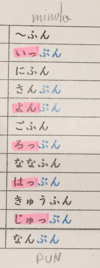 minuto
～ふん
いっぷん
にふん
さんぷん
よんぷん
ごふん
ろっぷん
ななふん
はっぷん
きゅうふん
じゅっぷん
なんぷん
PUN